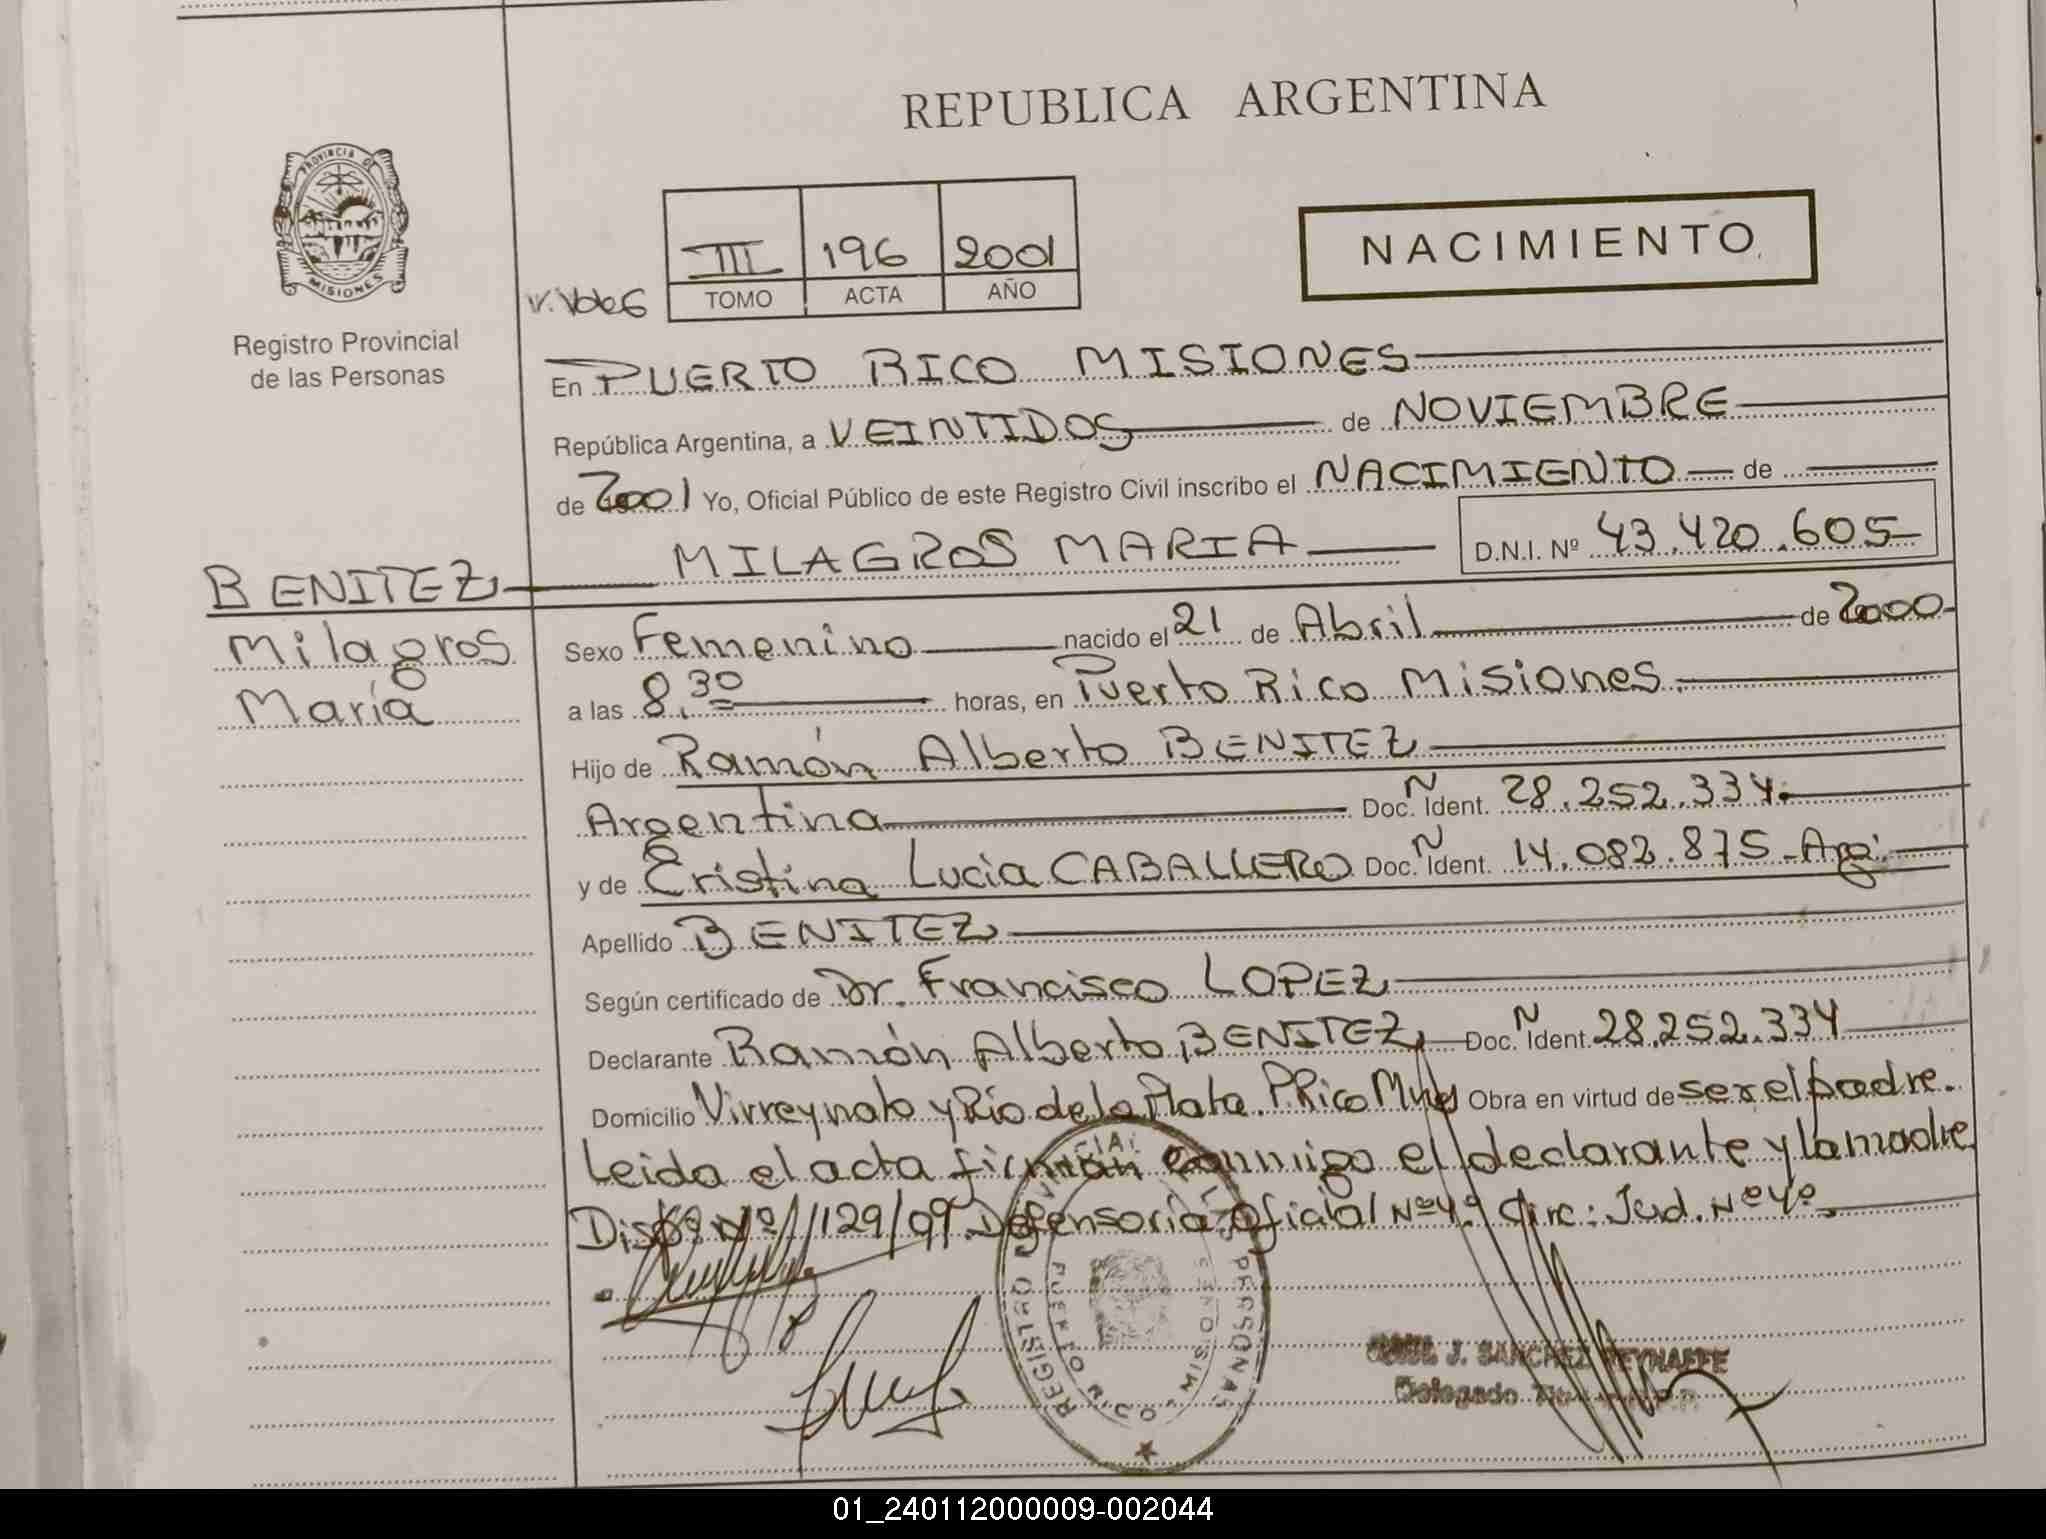 REPUBLICA ARGENTINA
PROVINCIA DE
MISIONES
Registro Provincial
de las Personas
III 196 2001
TOMO ACTA AÑO
NACIMIENTO
En PUERTO RICO MISIONES
República Argentina, a VEINTIDOS de NOVIEMBRE
de 2001 Yo, Oficial Público de este Registro Civil inscribo el NACIMIENTO de
BENITEZ MILAGROS MARIA D.N.I. Nº 43.420.605
Milagros
María
Sexo Femenino nacido el 21 de Abril de 2000
a las 8.30 horas, en Puerto Rico Misiones.
Hijo de Ramón Alberto BENITEZ
Argentina Doc. N Ident. 28.252.334.
y de Cristina Lucia CABALLERO Doc. N Ident. 14.082.875 - Arg.
Apellido BENITEZ
Según certificado de Dr. Francisco LOPEZ
Declarante Ramón Alberto BENITEZ Doc. N Ident. 28.252.334
Domicilio Virreynato y Rio de la Plata. P. Rico Obra en virtud de ser el padre.
Leida el acta firman conmigo el declarante y la madre
Disp. Nº 1129/99. Defensoría Oficial Nº 4º Circ: Jud. Nº 4º.
REGISTRO PERSONAS
PUERTO RICO MISIONES
J. SANCHEZ REYNAFFE
Delegado
01_240112000009-002044